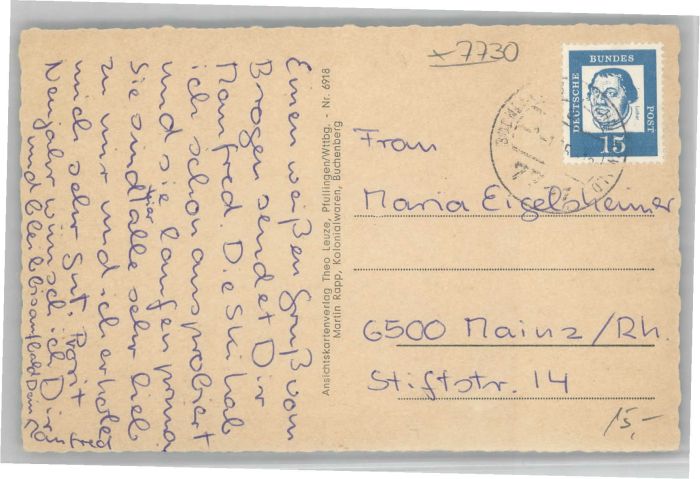 Einen weißen Gruß vom
Brogen sendet Dir
Manfred. Die Ski hab
ich schon ausprobiert
und sie laufen prima
Sie sind hier alle sehr lieb
zu mir und ich erhole
mich sehr gut. Prosit
Neujahr wünsch ich Dir
und bleib bis auf bald Dein
Manfred
Ansichtskartenverlag Theo Leuze, Pfullingen/Wttbg. - Nr. 6918
Martin Rapp, Kolonialwaren, Buchenberg
x 7730
DEUTSCHE
BUNDES
POST
Luther
15
Frau
Maria Eigelsheimer
6500 Mainz/Rh.
Stiftstr. 14
15,-